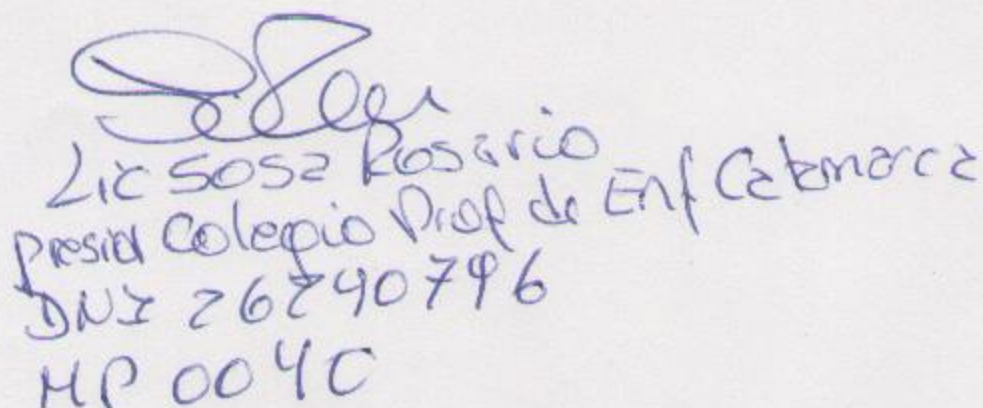 Lic Sosa Rosario
Presid Colegio Prof de Enf Catamarca
DNI 26240796
MP 004C